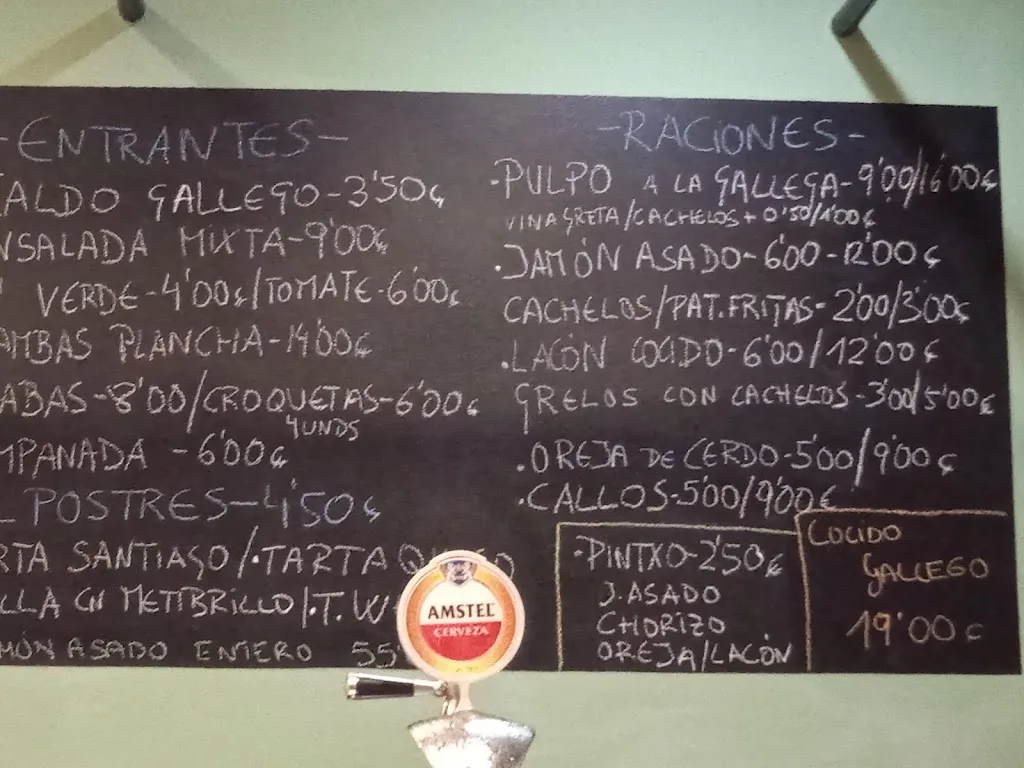 -ENTRANTES-
ALDO GALLEGO-3'50€
NSALADA MIXTA-9'00€
VERDE-4'00€/TOMATE-6'00€
AMBAS PLANCHA-14'00€
ABAS-8'00/CROQUETAS-6'00€
4UNDS
MPANADA -6'00€
POSTRES-4'50€
RTA SANTIAGO/·TARTA
LLA CN MEMBRILLO/·T.W
MÓN ASADO ENTERO 55'
-RACIONES-
·PULPO A LA GALLEGA-9'00/16'00€
VINAGRETA/CACHELOS+0'50/1'00€
·JAMÓN ASADO-6'00-12'00€
CACHELOS/PAT.FRITAS-2'00/3'00€
·LACÓN COCIDO-6'00/12'00€
GRELOS CON CACHELOS-3'00/5'00€
·OREJA DE CERDO-5'00/9'00€
·CALLOS-5'00/9'00€
·PINTXO-2'50€
J.ASADO
CHORIZO
OREJA/LACÓN
COCIDO
GALLEGO
19'00€
AMSTEL
CERVEZA